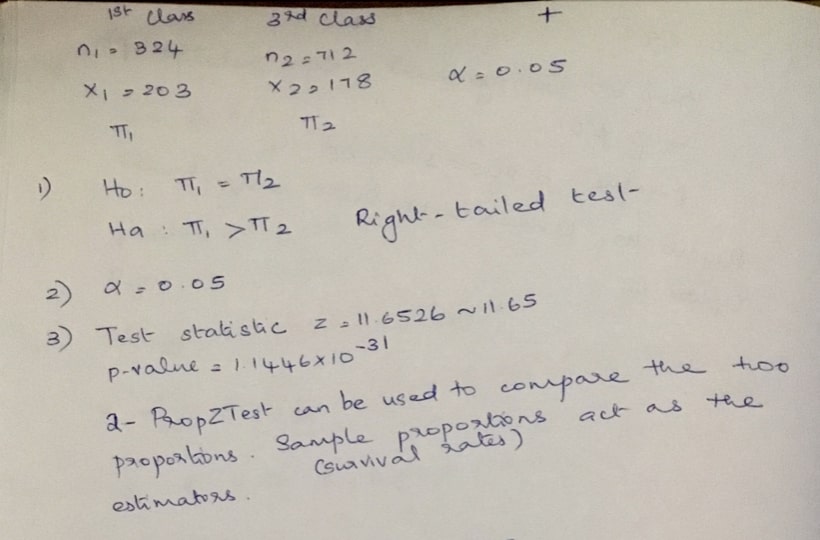 1st class 3rd class +
n₁ = 324 n₂ = 712
x₁ = 203 x₂ = 178 α = 0.05
π₁ π₂
1) Ho: π₁ = π₂
Ha: π₁ > π₂ Right-tailed test-
2) α = 0.05
3) Test statistic z = 11.6526 ~ 11.65
p-value = 1.1446×10⁻³¹
2-PropZTest can be used to compare the two
proportions. Sample proportions act as the
(survival rates)
estimators.